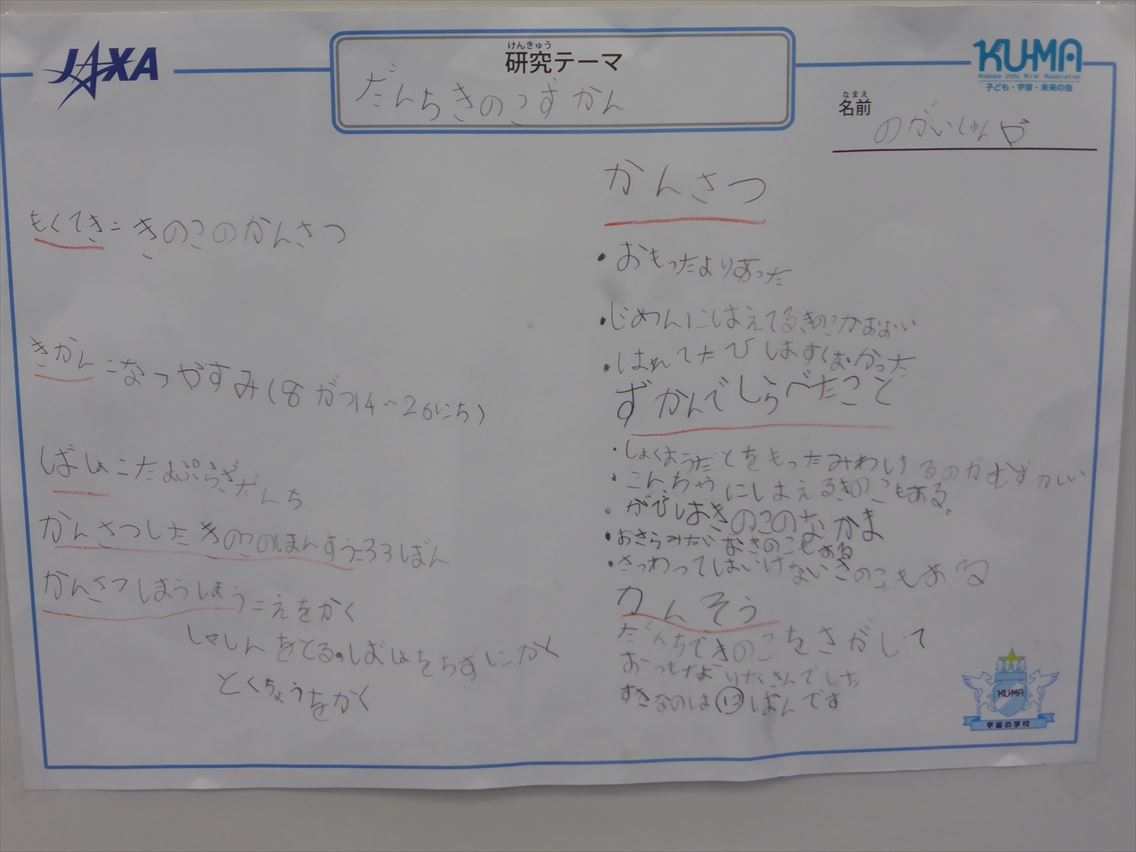 JAXA
けんきゅう
研究テーマ
だんちきのこずかん
KU-MA
Kodomo Uchu Mirai Association
子ども・宇宙・未来の会
なまえ
名前
のがいしゅんや
もくてき=きのこのかんさつ
きかん=なつやすみ(8がつ14~26にち)
ばしょ=たまぷらざだんち
かんさつしたきのこのほんすう=33ばん
かんさつほうほう=えをかく
しゃしんをとる。ばしょをちずにかく
とくちょうをかく
かんさつ
・おもったよりあった
・じめんにはえてるきのこがおおい
・はれてたひはすくなかった
ずかんでしらべたこと
・しょくようだとをもったみわけるのがむずかしい
・こんちゅうにはえるきのこもある。
・かびはきのこのなかま
・おさらみたいなきのこもある
・さわってはいけないきのこもある
かんそう
だんちできのこをさがして
おもったよりたくさんでした
すきなのは⑬ばんです
KU-MA
宇宙の学校